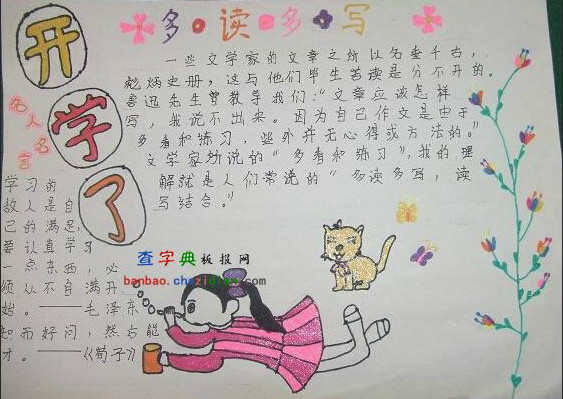 开学了
多·读·多·写
一些文学家的文章之所以名垂千古,
彪炳史册,这与他们毕生苦读是分不开的。
鲁迅先生曾教导我们:“文章应该怎样
写,我说不出来。因为自己作文是由于
多看和练习,些外并无心得或方法的。”
文学家所说的“多看和练习”,我的理
解就是人们常说的“多读多写,读
写结合。”
名人名言
学习的
敌人是自
己的满足,
要认真学习
一点东西,必
须从不自满开
始。——毛泽东
知而好问,然后能
才。——《荀子》
查字典板报网
banbao.chazidian.com